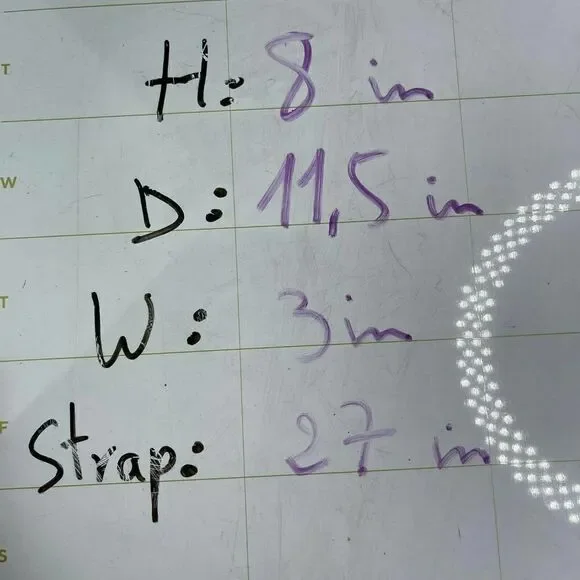 T
H: 8 in
W
D: 11,5 in
T
W: 3 in
F
Strap: 27 in
S